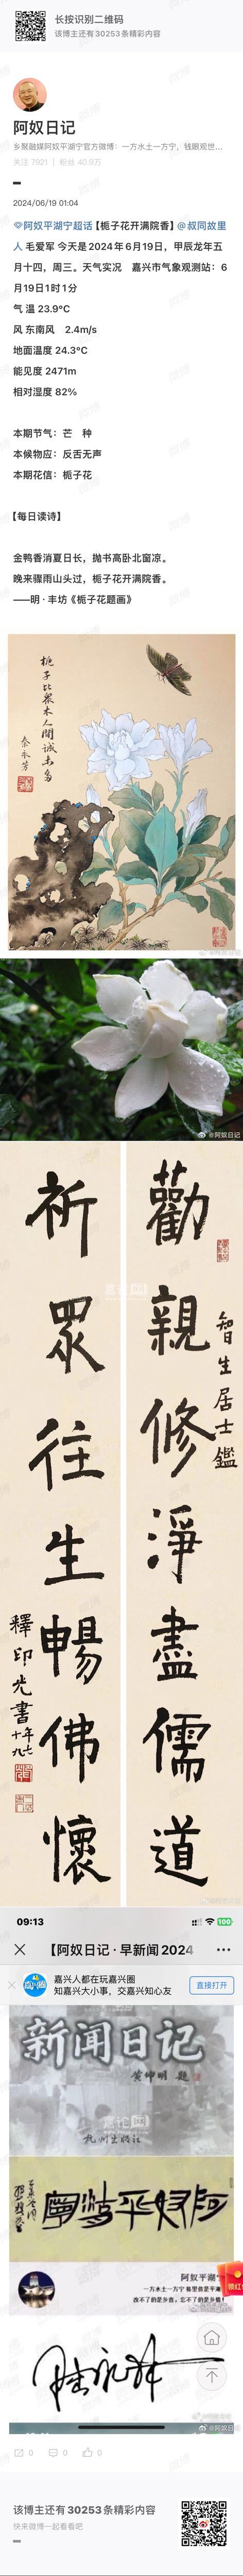 长按识别二维码
该博主还有30253条精彩内容
阿奴日记
乡聚融媒阿奴平湖宁官方微博：一方水土一方宁，钱眼观世...
关注 7921 | 粉丝 40.9万
2024/06/19 01:04
阿奴平湖宁超话【栀子花开满院香】@叔同故里
人 毛爱军 今天是2024年6月19日，甲辰龙年五
月十四，周三。天气实况 嘉兴市气象观测站：6
月19日1时1分
气 温 23.9°C
风 东南风 2.4m/s
地面温度 24.3°C
能见度 2471m
相对湿度 82%
本期节气：芒 种
本候物应：反舌无声
本期花信：栀子花
【每日读诗】
金鸭香消夏日长，抛书高卧北窗凉。
晚来骤雨山头过，栀子花开满院香。
——明 · 丰坊《栀子花题画》
栀子比众木人間誠未多
秦永芳
@阿奴日记
勸親修淨盡儒道
智生居士鑑
祈眾往生暢佛懷
釋印光書
時年七十九
09:13
100
【阿奴日记 · 早新闻2024
嘉兴人都在玩嘉兴圈
知嘉兴大小事，交嘉兴知心友
直接打开
新闻日记
黄仲明 题
杭州出版社
阿奴平湖宁
一方水土一方宁
领红包
@阿奴日记
0
0
0
该博主还有30253条精彩内容
快来微博一起看看吧